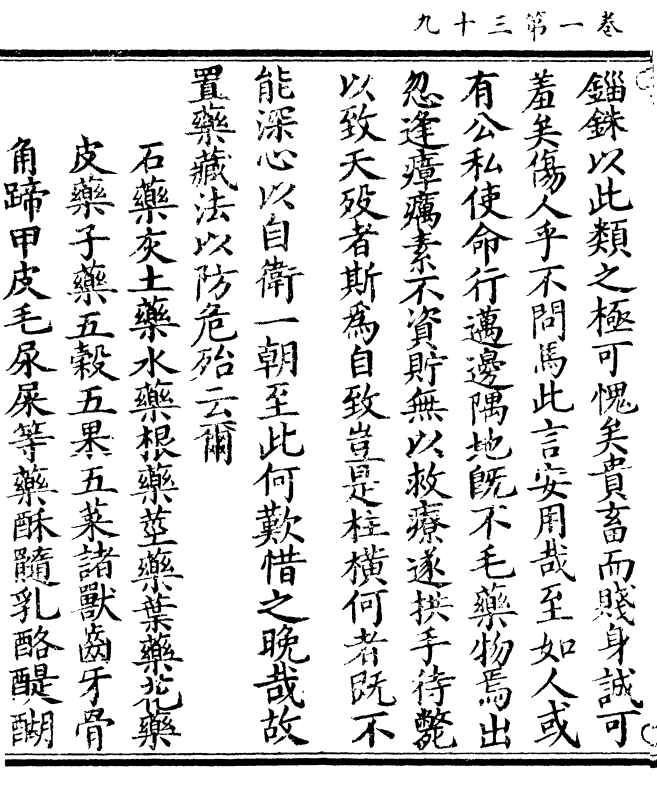 卷一第三十九
錙銖以此類之極可愧矣貴畜而賤身誠可
羞矣傷人乎不問馬此言安用哉至如人或
有公私使命行邁邊隅地既不毛藥物焉出
忽逢瘴癘素不資貯無以救療遂拱手待斃
以致夭歿者斯為自致豈是枉橫何者既不
能深心以自衛一朝至此何歎惜之晚哉故
置藥藏法以防危殆云爾
石藥灰土藥水藥根藥莖藥葉藥花藥
皮藥子藥五穀五果五菜諸獸齒牙骨
角蹄甲皮毛尿屎等藥酥髓乳酪醍醐